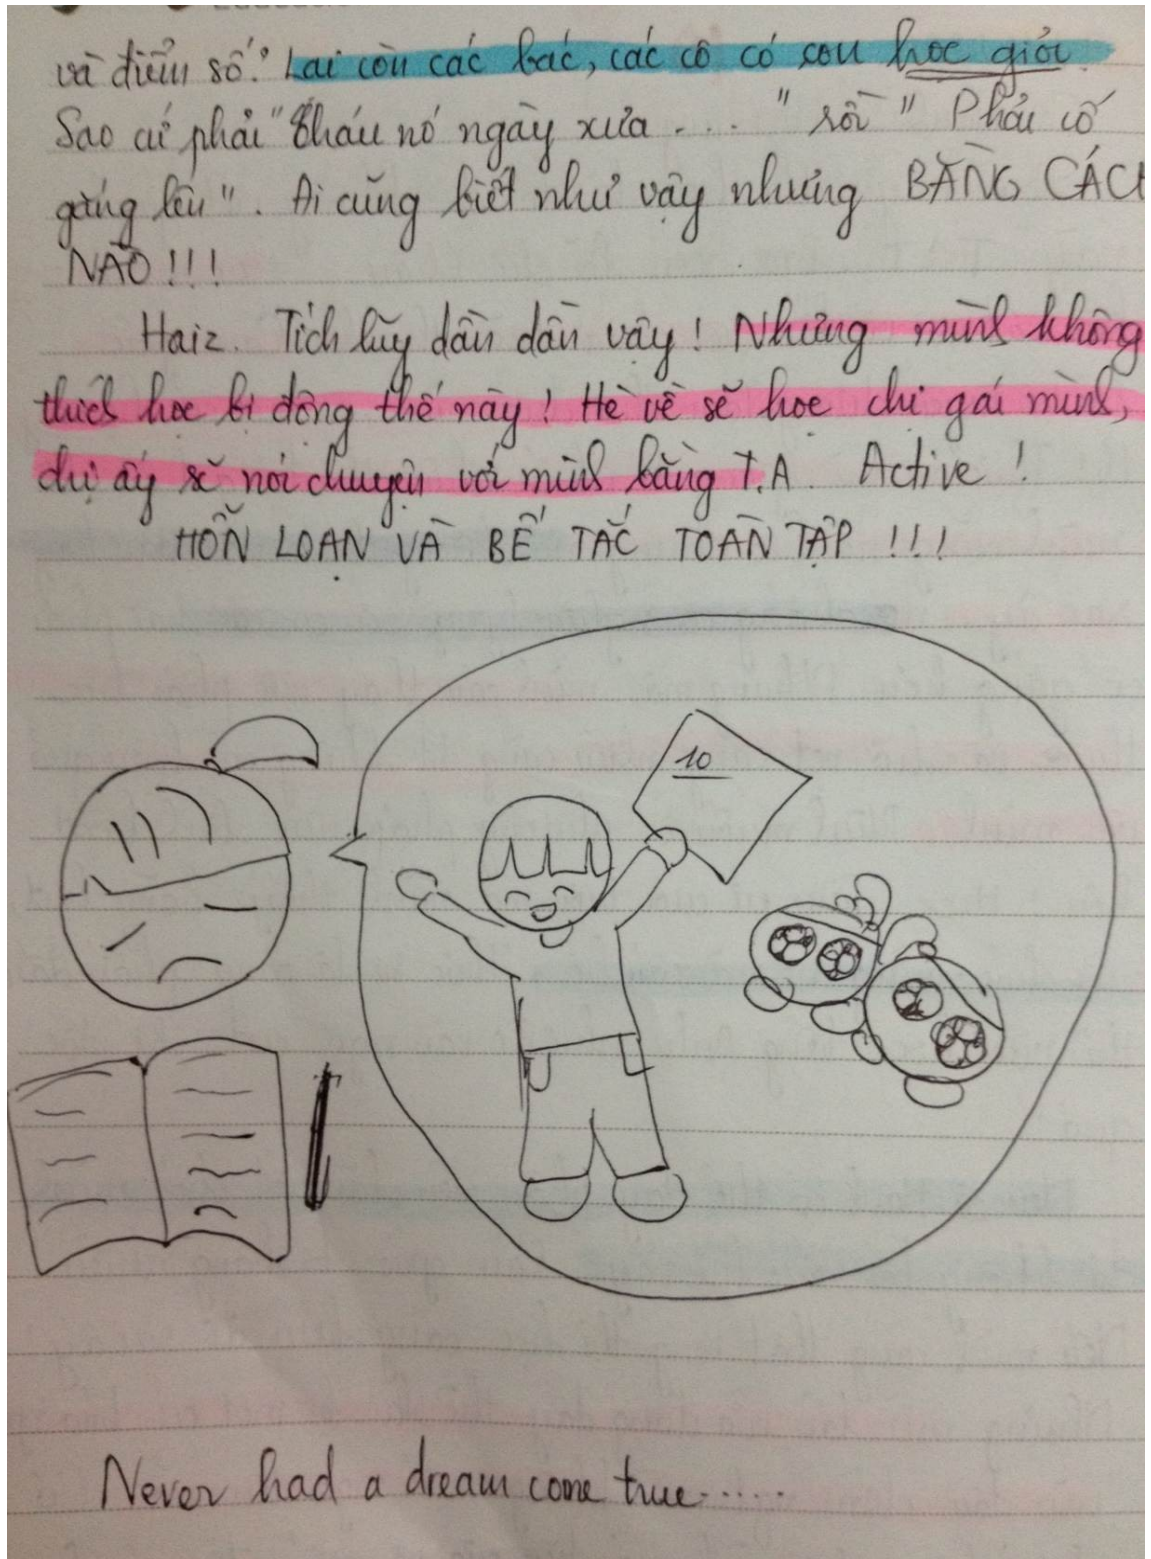 và điểm số. Lại còn các bác, các cô có con học giỏi.
Sao cứ phải "Cháu nó ngày xưa .... " rồi " Phải cố
gắng lên". Ai cũng biết như vậy nhưng BẰNG CÁCH
NÀO !!!
Haiz. Tích lũy dần dần vậy ! Nhưng mình không
thích học bị động thế này ! Hè về sẽ học chị gái mình,
chị ấy sẽ nói chuyện với mình bằng T.A. Active !
HỖN LOẠN VÀ BẾ TẮC TOÀN TẬP !!!
10
Never had a dream come true......